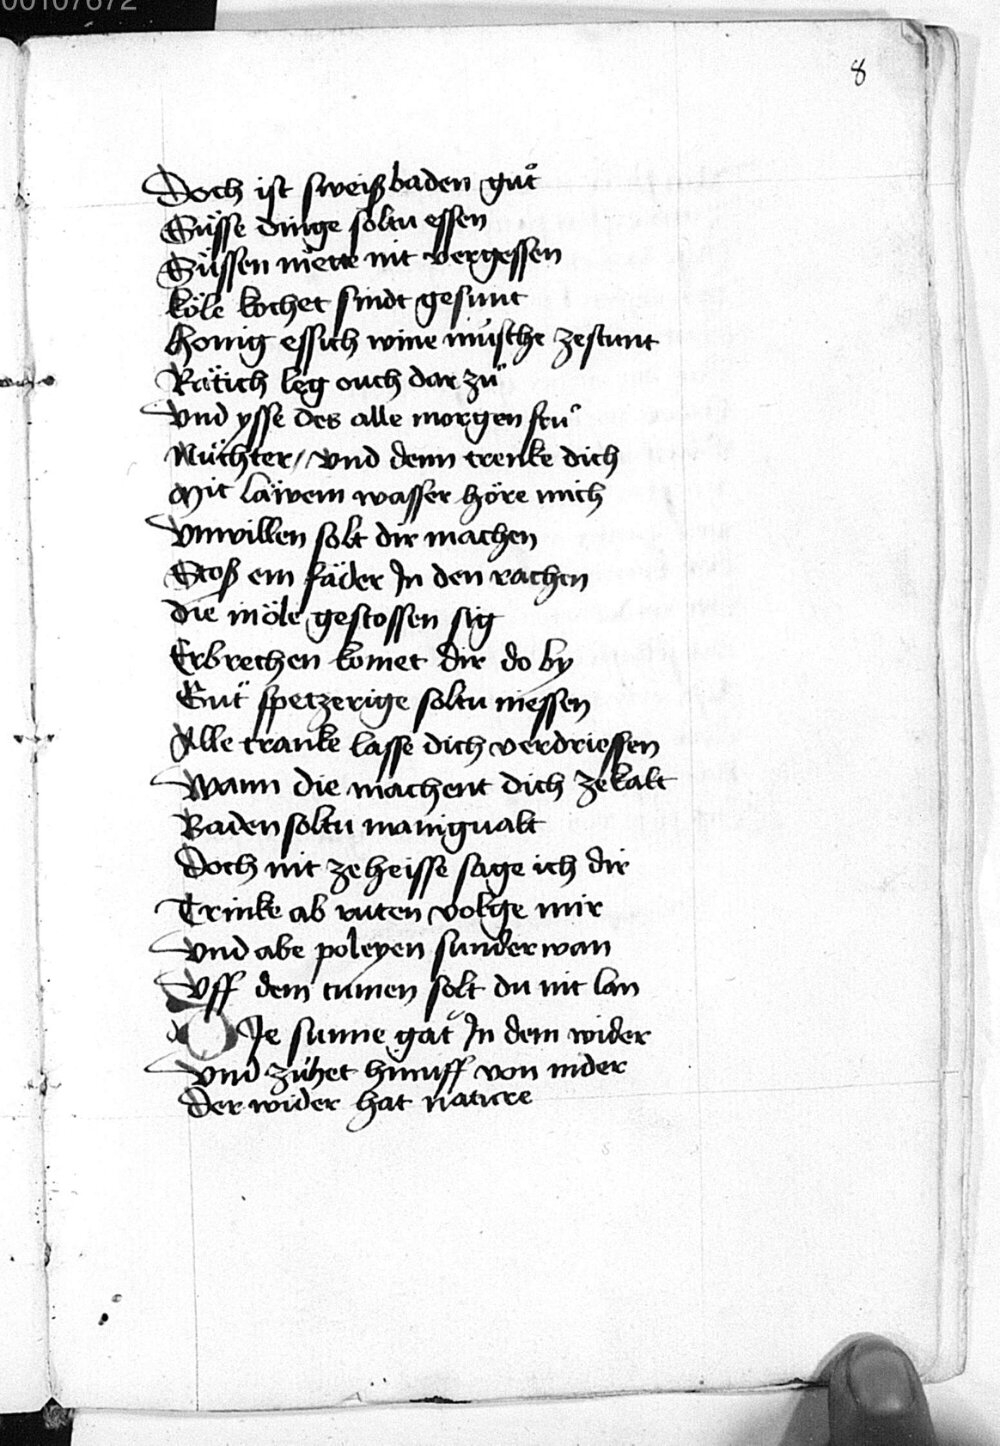 00107672
8
Doch ist sweißbaden guͦt
Süsse dinge soltu essen
Süssen mette nit vergessen
köle kochet sindt gesunt
honig essich wine müsche zestunt
Rätich leg ouch dar zuͦ
Vnd ysse des alle morgen fruͦ
Nüchter // vnd denn trenke dich
Mit läwem wasser höre mich
Vnwillen solt dir machen
Stoß ein fäder Jn den rachen
die in öle gestossen sig
Erbrechen komet dir do by
Guͦt spetzerige soltu niessen
Alle tranke lasse dich verdriessen
Wann die machent dich ze kalt
Baden soltu manigualt
Doch nit ze heisse sage ich dir
Trinke ab ruten volge mir
Vnd abe poleyen sunder wan
Vff dem tumen solt du nit lan
DJe sunne gät Jn dem wider
Vnd zühet hinuff von nider
Der wider hat nature